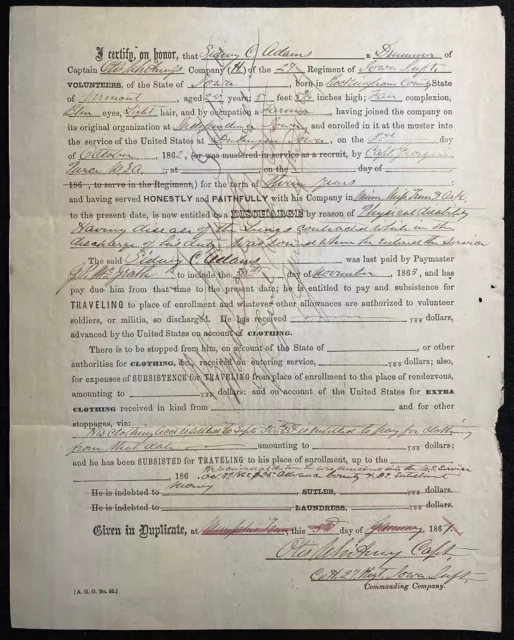 I certify, on honor, that Sidney C Adams a Drummer of
Captain Otis Whitney's Company (H) of the 27 Regiment of Iowa Inft.
VOLUNTEERS, of the State of Iowa, born in Rockingham County State
of Vermont aged years; 5 feet inches high; Fair complexion,
Blue eyes, Light hair, and by occupation a Farmer, having joined the company on
its original organization at Iowa, and enrolled in it at the muster into
the service of the United States at Dubuque Iowa, on the 3rd day
of October, 1862, (or was mustered in service as a recruit, by Capt George
U.S.A., at on the day of
186 , to serve in the Regiment,) for the term of Three years:
and having served HONESTLY and FAITHFULLY with his Company in Minn Miss Tenn & Ark
to the present date, is now entitled to a DISCHARGE by reason of Physical disability
Having disease of the lungs contracted while in the
discharge of his duty. Was sound when he entered the service
The said Sidney C Adams was last paid by Paymaster
McGrath to include the day of November, 1863, and has
pay due him from that time to the present date; he is entitled to pay and subsistence for
TRAVELING to place of enrollment and whatever other allowances are authorized to volunteer
soldiers, or militia, so discharged. He has received /100 dollars,
advanced by the United States on account of CLOTHING.
There is to be stopped from him, on account of the State of , or other
authorities for CLOTHING, &c., received on entering service, /100 dollars; also,
for expenses of SUBSISTENCE for TRAVELING from place of enrollment to the place of rendezvous,
amounting to /100 dollars: and on account of the United States for EXTRA
CLOTHING received in kind from and for other
stoppages, viz:
His clothing is settled to is entitled to pay for clothing
from that date amounting to /100 dollars;
and he has been SUBSISTED for TRAVELING to his place of enrollment, up to the
, 186 He was mustered into the U.S. Service
Oct 3rd 1862 $25 Advance bounty
He is indebted to SUTLER, dollars,
He is indebted to LAUNDRESS, dollars.
Given in Duplicate, at Memphis Tenn this day of January, 1864.
Otis Whitney Capt
Co H 27 Regt Iowa Inft.
[A. G. O. No. 95.] Commanding Company.